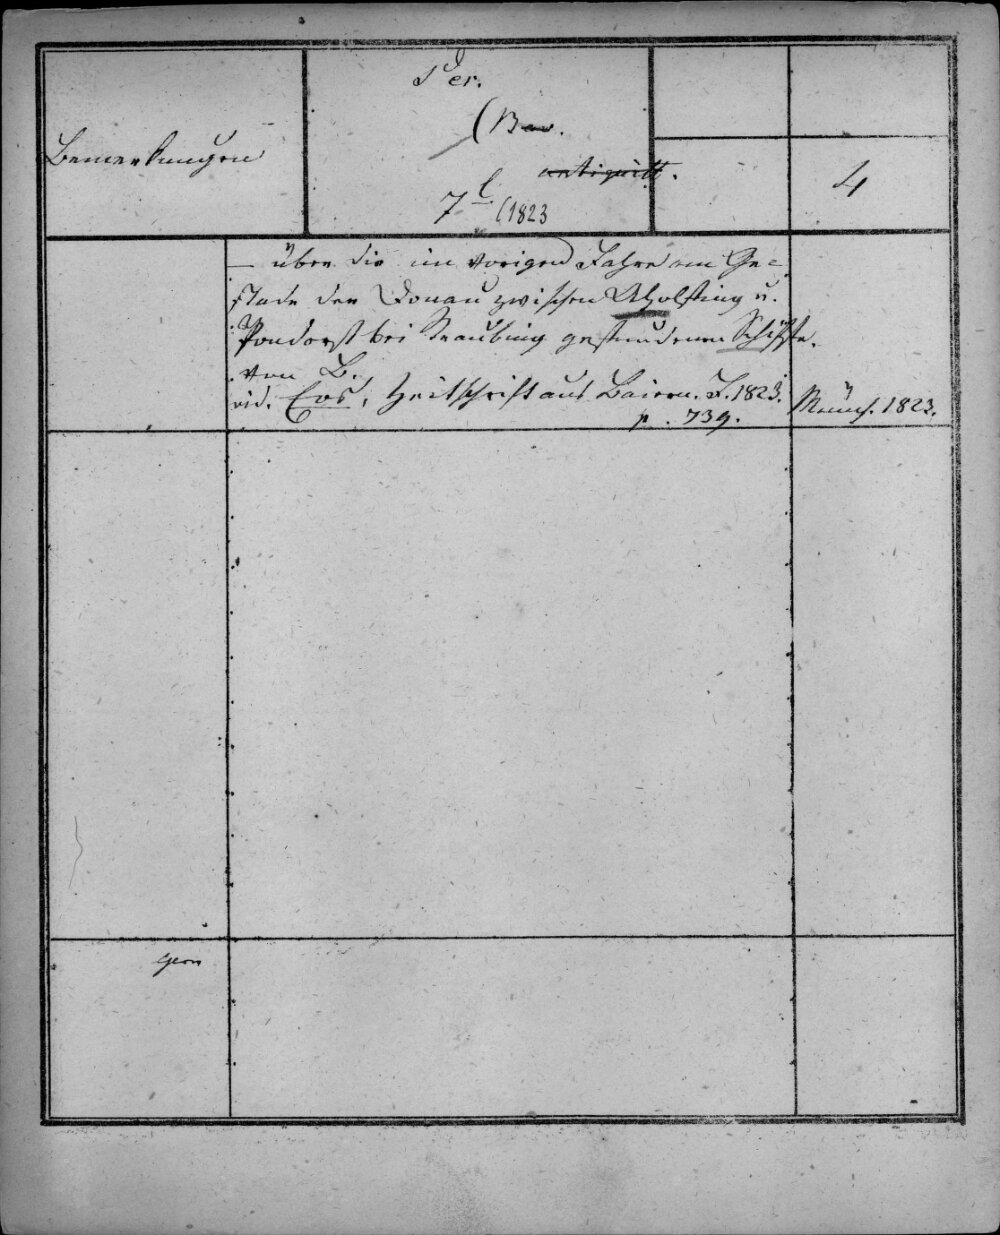 Bemerkungen
Per.
(Bav.
antiquitt.
7 l (1823
4
— über die im vorigen Jahre am Ge-
stade der Donau zwischen Aholfing u.
Pondorf bei Straubing gefundenen Schiffe.
von B.
vid. Eos, Zeitschrift aus Baiern. J. 1823.
p. 739.
Münch. 1823.
Germ